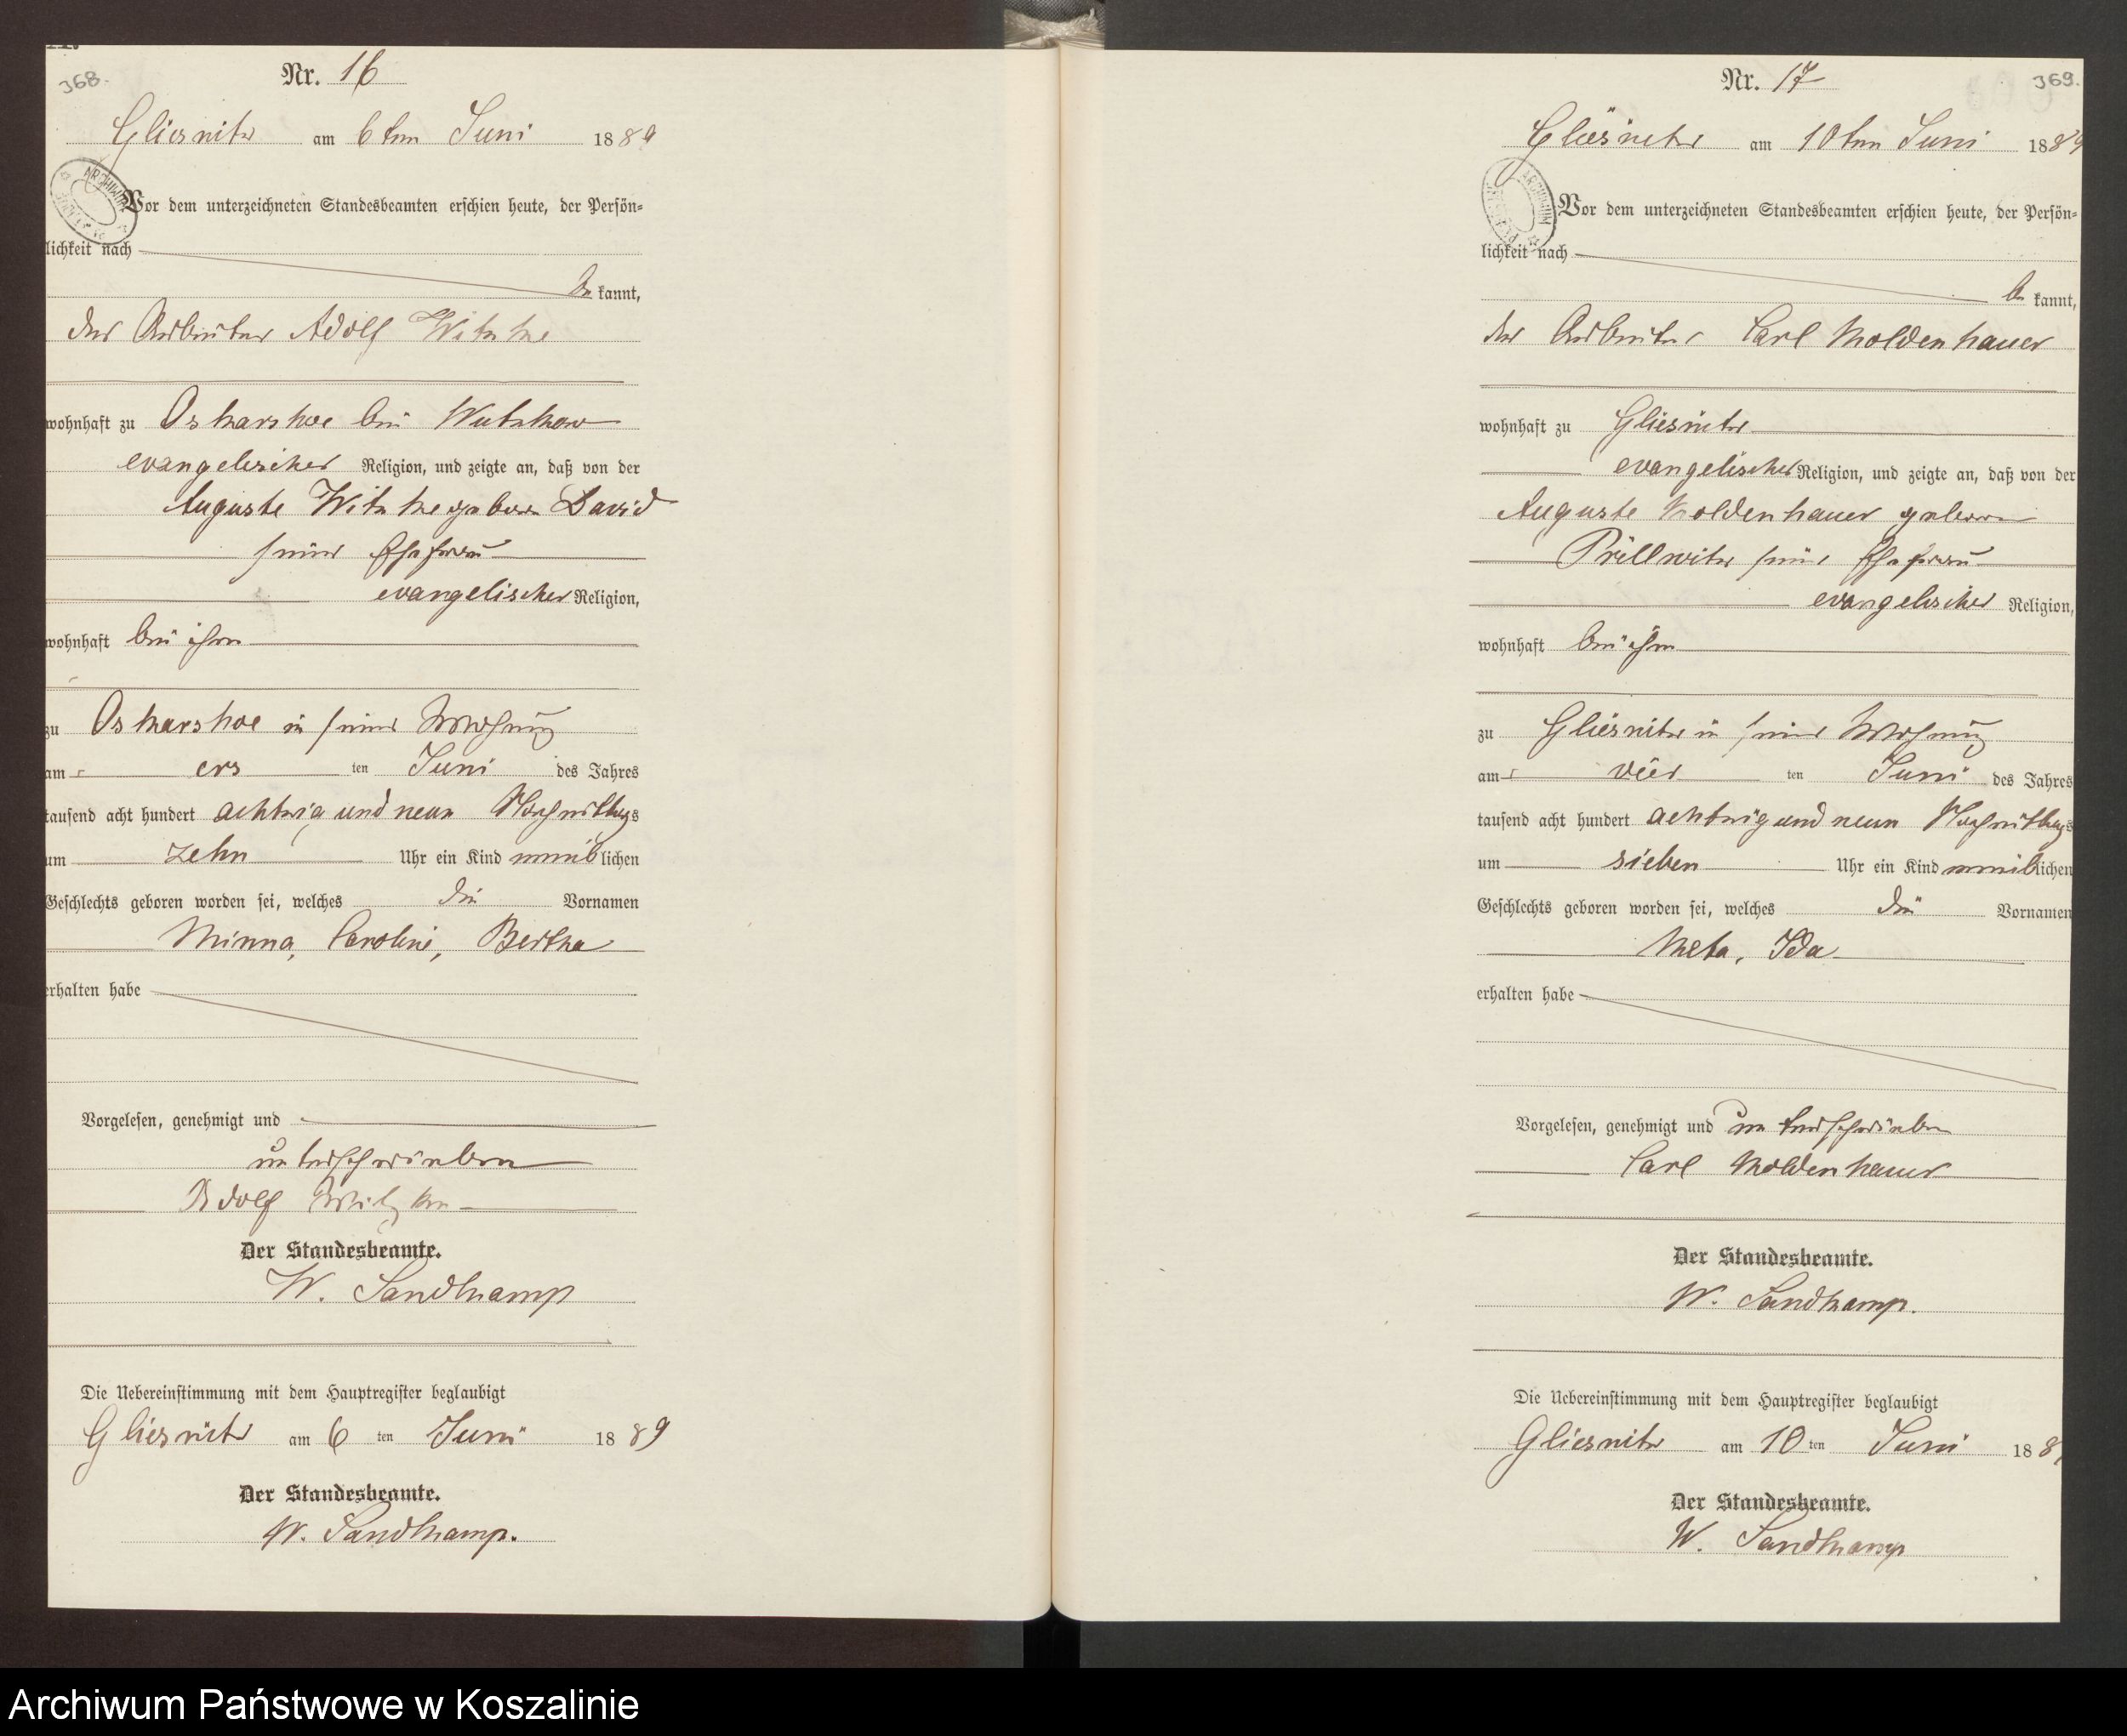 368.
Nr. 16
Gliesnitz am 6ten Juni 1889
Vor dem unterzeichneten Standesbeamten erschien heute, der Persön=
lichkeit nach
be kannt,
der Arbeiter Adolf Witzke
wohnhaft zu Oskarshoe bei Wutzkow
evangelischer Religion, und zeigte an, daß von der
Auguste Witzke geboren David
seiner Ehefrau
evangelischer Religion,
wohnhaft bei ihm
zu Oskarshoe in seiner Wohnung
am ers ten Juni des Jahres
tausend acht hundert achtzig und neun Nachmittags
um zehn Uhr ein Kind weiblichen
Geschlechts geboren worden sei, welches die Vornamen
Minna, Caroline, Bertha
erhalten habe
Vorgelesen, genehmigt und
unterschrieben
Adolf Witzke
Der Standesbeamte.
W. Sandkamp
Die Uebereinstimmung mit dem Hauptregister beglaubigt
Gliesnitz am 6 ten Juni 1889
Der Standesbeamte.
W. Sandkamp.
369.
Nr. 17
Gliesnitz am 10ten Juni 1889
Vor dem unterzeichneten Standesbeamten erschien heute, der Persön=
lichkeit nach
be kannt,
der Arbeiter Carl Moldenhauer
wohnhaft zu Gliesnitz
evangelischer Religion, und zeigte an, daß von der
Auguste Moldenhauer geboren
Prillwitz seiner Ehefrau
evangelischer Religion,
wohnhaft bei ihm
zu Gliesnitz in seiner Wohnung
am vier ten Juni des Jahres
tausend acht hundert achtzig und neun Nachmittags
um sieben Uhr ein Kind weiblichen
Geschlechts geboren worden sei, welches die Vornamen
Meta, Ida
erhalten habe
Vorgelesen, genehmigt und unterschrieben
Carl Moldenhauer
Der Standesbeamte.
W. Sandkamp.
Die Uebereinstimmung mit dem Hauptregister beglaubigt
Gliesnitz am 10 ten Juni 188
Der Standesbeamte.
W. Sandkamp
Archiwum Państwowe w Koszalinie